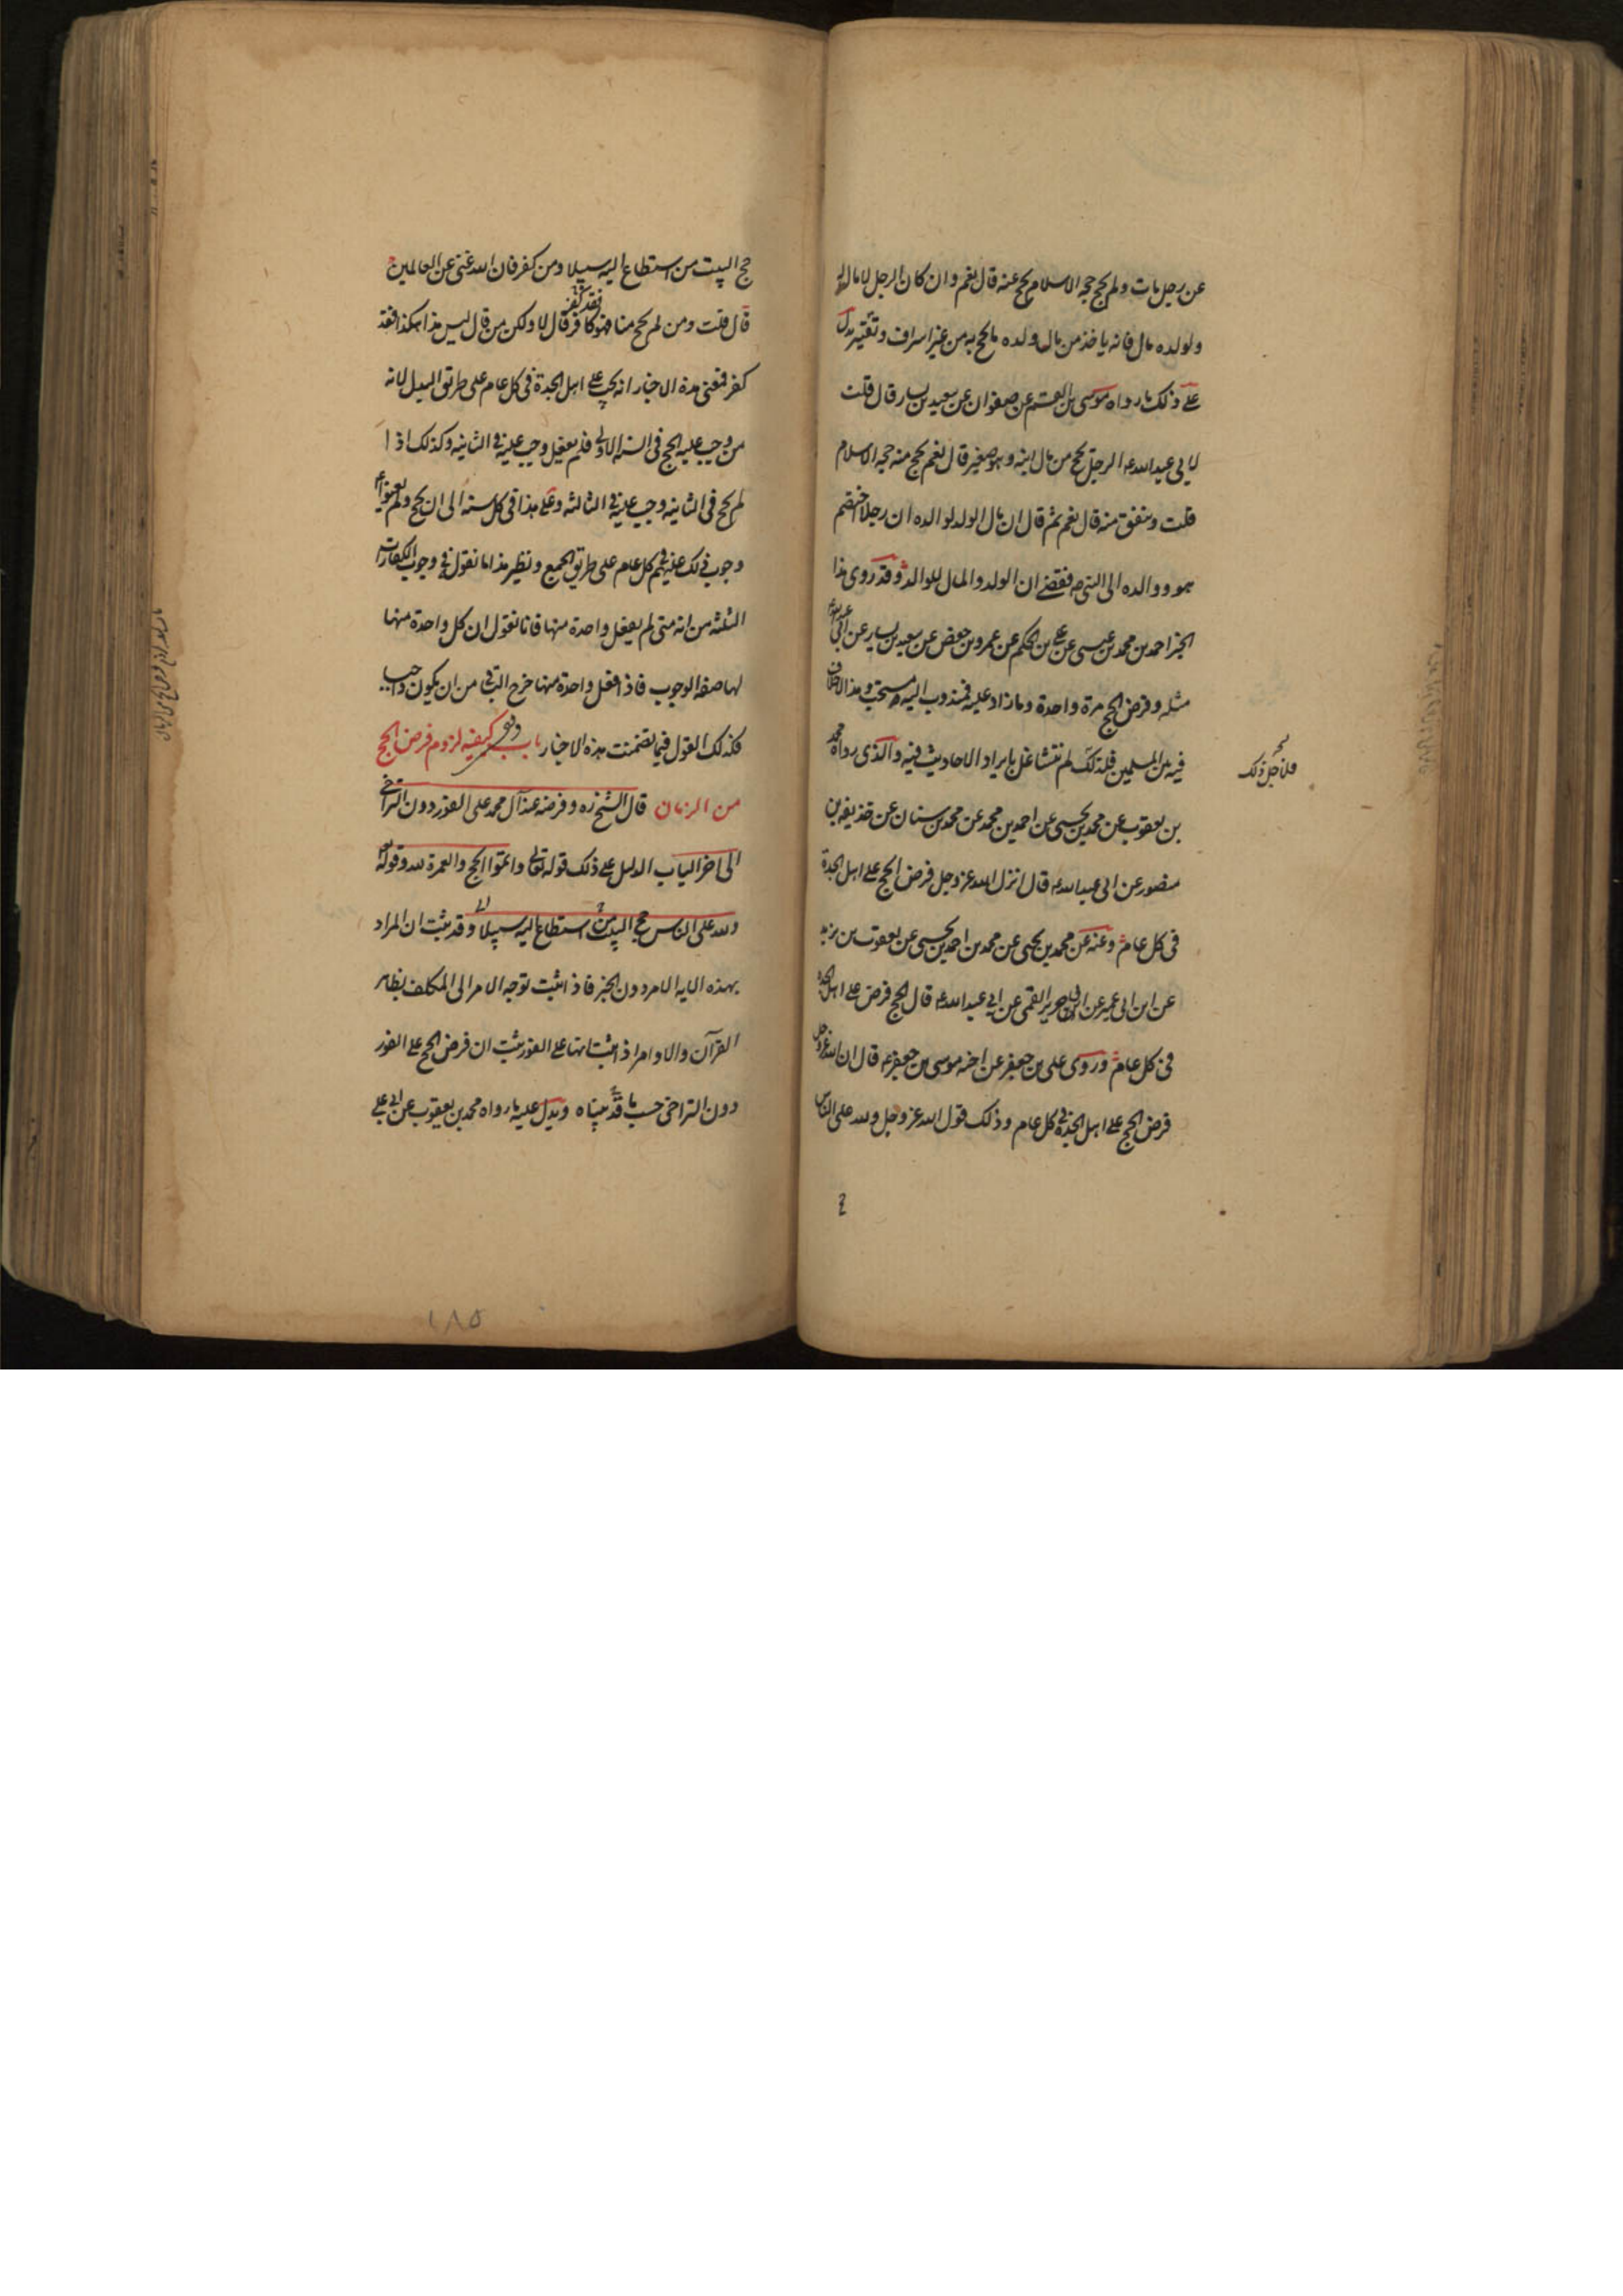 عن رجل مات ولم يحج حجه الاسلام يحج عنه قال نعم وان كان الرجل لا مال له
ولولده مال فانه ياخذ من مال ولده ما يحج به من غير اسراف وتقتير يدل
على ذلك ما رواه موسى بن القسم عن صفوان عن سعيد بن يسار قال قلت
لابي عبد الله ع الرجل يحج من مال ابنه وهو صغير قال نعم يحج منه حجه الاسلام
قلت وينفق منه قال نعم ثم قال ان مال الولد لوالده ان رجلا اختصم
هو ووالده الى النبي ص فقضى ان الولد والمال للوالد وقد روى هذا
الخبر احمد بن محمد بن عيسى عن علي بن الحكم عن عمرو بن حفص عن سعيد بن يسار عن ابي عبد الله ع
مثله وفرض الحج مرة واحدة وما زاد عليه فمندوب اليه ومستحب وهذا لا خلاف
فيه بين المسلمين فلذلك لم نتشاغل بايراد الاحاديث فيه والذى رواه محمد
فلاجل ذلك
بن يعقوب عن محمد بن يحيى عن احمد بن محمد عن محمد بن سنان عن حذيفه بن
منصور عن ابى عبد الله ع قال انزل الله عز وجل فرض الحج على اهل الجدة
فى كل عام وعنه عن محمد بن يحيى عن محمد بن احمد بن يحيى عن يعقوب بن يزيد
عن ابن ابى عمير عن ابى جرير القمى عن ابي عبد الله ع قال الحج فرض على اهل الجدة
فى كل عام وروى على بن جعفر عن اخيه موسى بن جعفر ع قال ان الله عز وجل
فرض الحج على اهل الجدة في كل عام وذلك قول الله عز وجل ولله على الناس
حج البيت من استطاع اليه سبيلا ومن كفر فان الله غنى عن العالمين
قال قلت ومن لم يحج منا فقد كفر فهو كافر قال لا ولكن من قال ليس هذا هكذا فقد
كفر فمعنى هذه الاخبار انه يجب على اهل الجدة فى كل عام على طريق البدل لانه
من وجب عليه الحج فى السنه الاولى فلم يفعل وجب عليه في الثانيه وكذلك اذا
لم يحج فى الثانيه وجب عليه في الثالثه وعلى هذا فى كل سنه الى ان يحج ولم يعنوا ع
وجوب ذلك عليهم كل عام على طريق الجمع ونظير هذا ما نقول في وجوب الكفارات
الثلثه من انه متى لم يفعل واحدة منها فانا نقول ان كل واحدة منها
لها صفه الوجوب فاذا فعل واحدة منها خرج الباقي من ان يكون واجبا
فكذلك القول فيما تضمنت هذه الاخبار باب كيفيه لزوم فرض الحج
من الزمان قال الشيخ ره وفرضه عند آل محمد على الفور دون التراخي
الى اخر الباب الدليل على ذلك قوله تعالى واتموا الحج والعمرة لله وقوله تعالى
ولله على الناس حج البيت من استطاع اليه سبيلا وقد ثبت ان المراد
بهذه الايه الامر دون الخبر فاذا ثبت توجه الامر الى المكلف بظاهر
القرآن والاوامر اذ اثبت انها على الفور يثبت ان فرض الحج على الفور
دون التراخى حسب ما قد بيناه ويدل عليه ما رواه محمد بن يعقوب عن ابي على
١٨٥